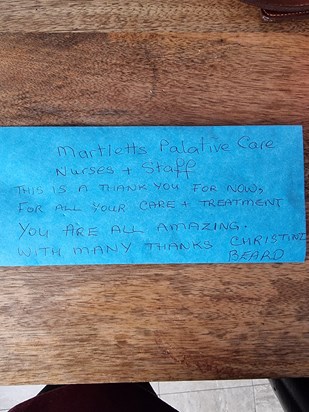 Martletts Palative Care
Nurses + Staff
THIS IS A THANK YOU FOR NOW,
FOR ALL YOUR CARE + TREATMENT
YOU ARE ALL AMAZING.
WITH MANY THANKS CHRISTINE
BEARD